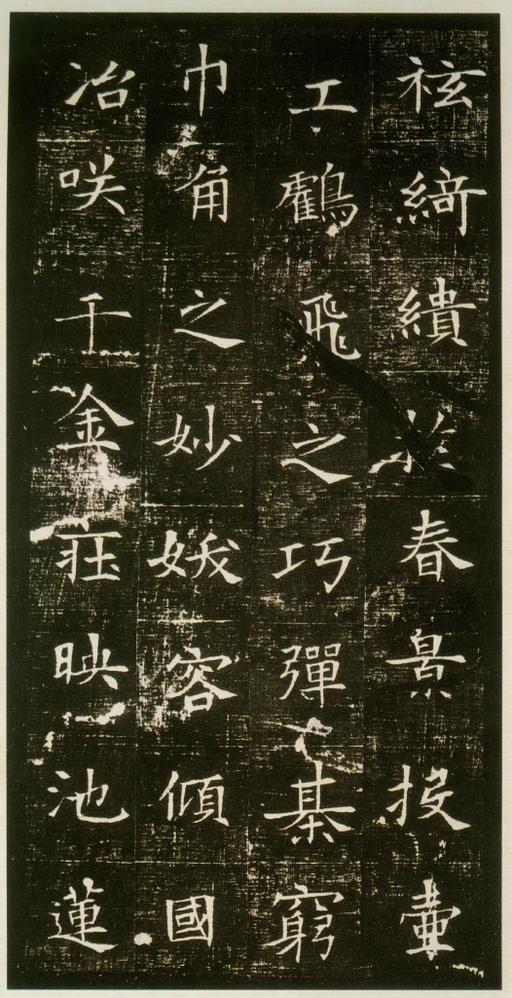 袨綺繢於春景投壷
工鸖飛之巧彈棊窮
巾角之妙娥容傾國
冶咲千金莊映池蓮